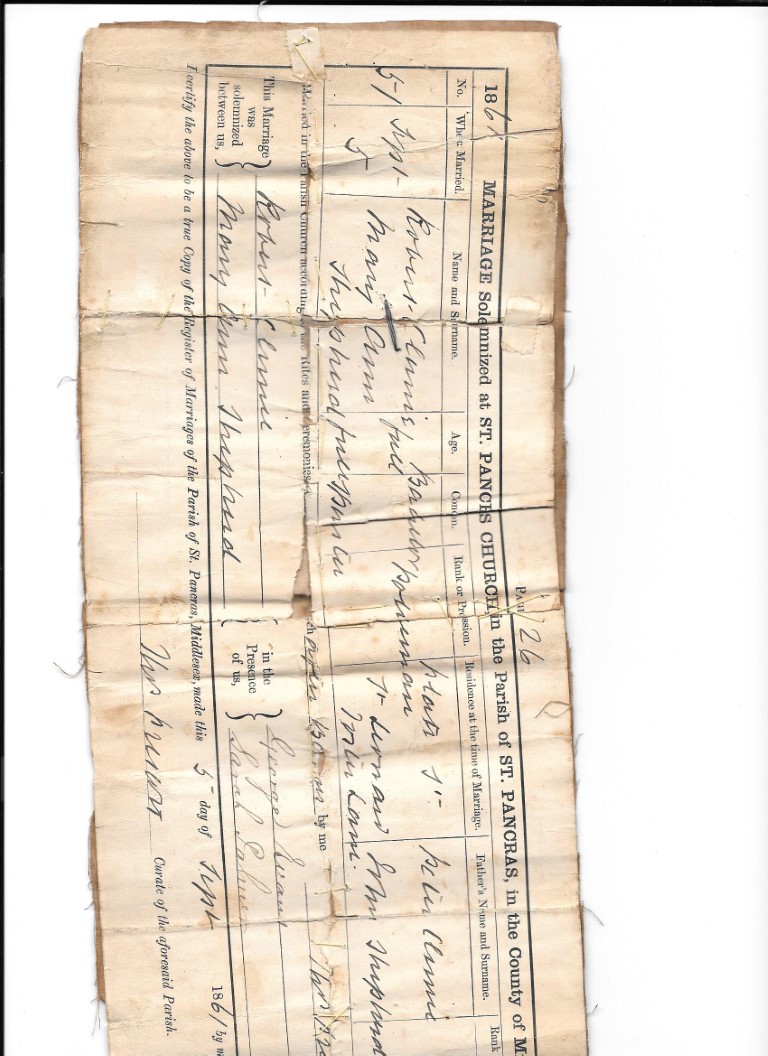 PAGE 126
1861 MARRIAGE Solemnized at ST. PANCES CHURCH, in the Parish of ST. PANCRAS, in the County of M
No. When Married. Name and Surname. Age. Concon. Rank or Pression. Residence at the time of Marriage. Father's Name and Surname. Rank
51 Sept- 5 Robert Clunie full Bachelor Platt St- Peter Clunie
Mary Ann Shepherd full Spinster St Leonard Shepherd
Married in the Parish Church according Rites and Ceremonies after Banns by me Thos
This Marriage was solemnized between us, Robert Clunie
Mary Ann Shepherd
in the Presence of us, George Evans
Sarah
I certify the above to be a true Copy of the Register of Marriages of the Parish of St. Pancras, Middlesex, made this 5 day of Sept 1861 by m
Thos Curate of the aforesaid Parish.